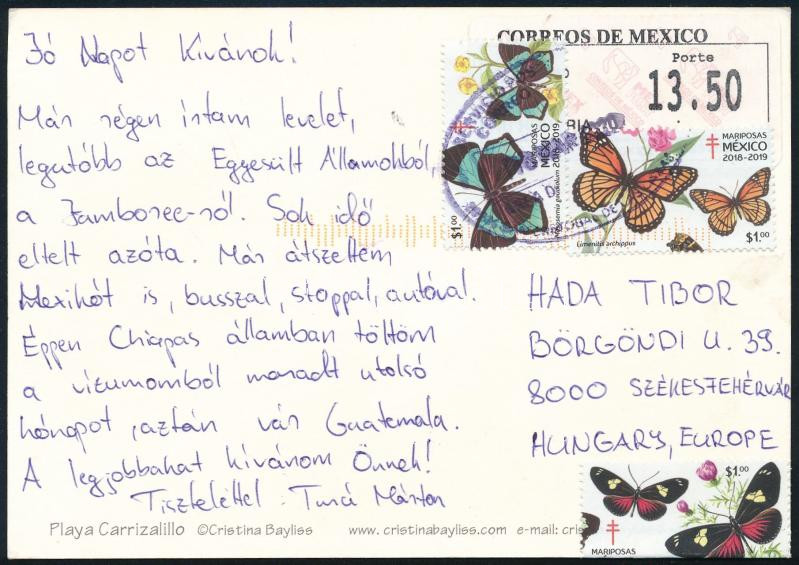 Jó Napot Kívánok!
Már régen írtam levelet,
legutóbb az Egyesült Államokból,
a Jamboree-ról. Sok idő
eltelt azóta. Már átszeltem
Mexikót is, busszal, stoppal, autóval.
Éppen Chiapas államban töltöm
a vízumomból maradt utolsó
hónapot, aztán vár Guatemala.
A legjobbakat kívánom Önnek!
Tisztelettel: Turi Márton
Playa Carrizalillo ©Cristina Bayliss www.cristinabayliss.com e-mail: cris
CORREOS DE MEXICO
Porte
13.50
MARIPOSAS
MÉXICO
2018-2019
$1.00
MARIPOSAS
MÉXICO
2018-2019
Limenitis archippus
$1.00
HADA TIBOR
BÖRGÖNDI U. 39.
8000 SZÉKESFEHÉRVÁR
HUNGARY, EUROPE
$1.00
MARIPOSAS